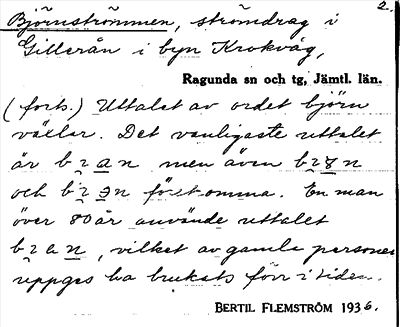 2.
Björnströmmen, strömdrag i
Gillerån i byn Krokvåg,
Ragunda sn och tg, Jämtl. län.
(forts.) Uttalet av ordet björn
växlar. Det vanligaste uttalet
är men även
och förekomma. En man
över 80 år använde uttalet
vilket av gamla personer
uppges ha brukats förr i tiden.
BERTIL FLEMSTRÖM 1936.